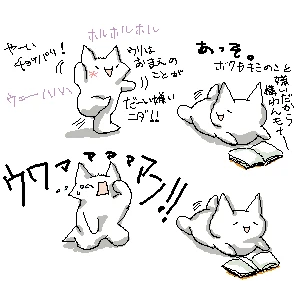 ホルホルホル
やーい
チョッパリ！
ウリは
おまえの
ことが
だーい嫌い
ニダ！！
ウェーハハハ
あっそ。
ボクもキミのこと
嫌いだから
構わんもナー
ウワァァァァァン！！